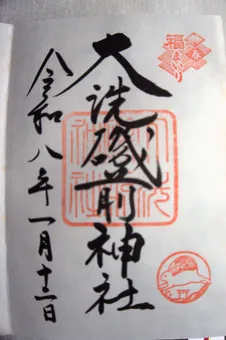 福
まいり
大洗磯前神社
令和八年一月十一日